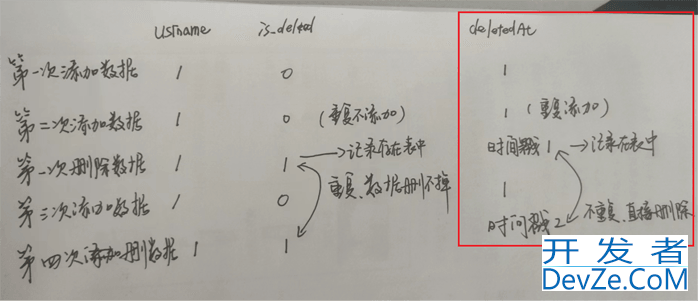 usrname is_deleted deletedAt
第一次添加数据 1 0 1
第二次添加数据 1 0 (重复不添加) 1 (重复添加)
第一次删除数据 1 1 →记录存在表中 时间戳1 →记录在表中
重复、数据删不掉
第三次添加数据 1 0 1
不重复、直接删除
第四次删数据 1 1 时间戳2
开发者
DevZe.CoM